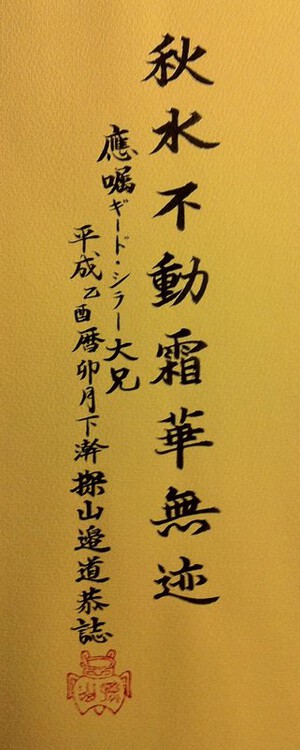 秋水不動霜華無迹
應嘱ギード・シラー大兄
平成乙酉暦卯月下澣探山邉道恭誌